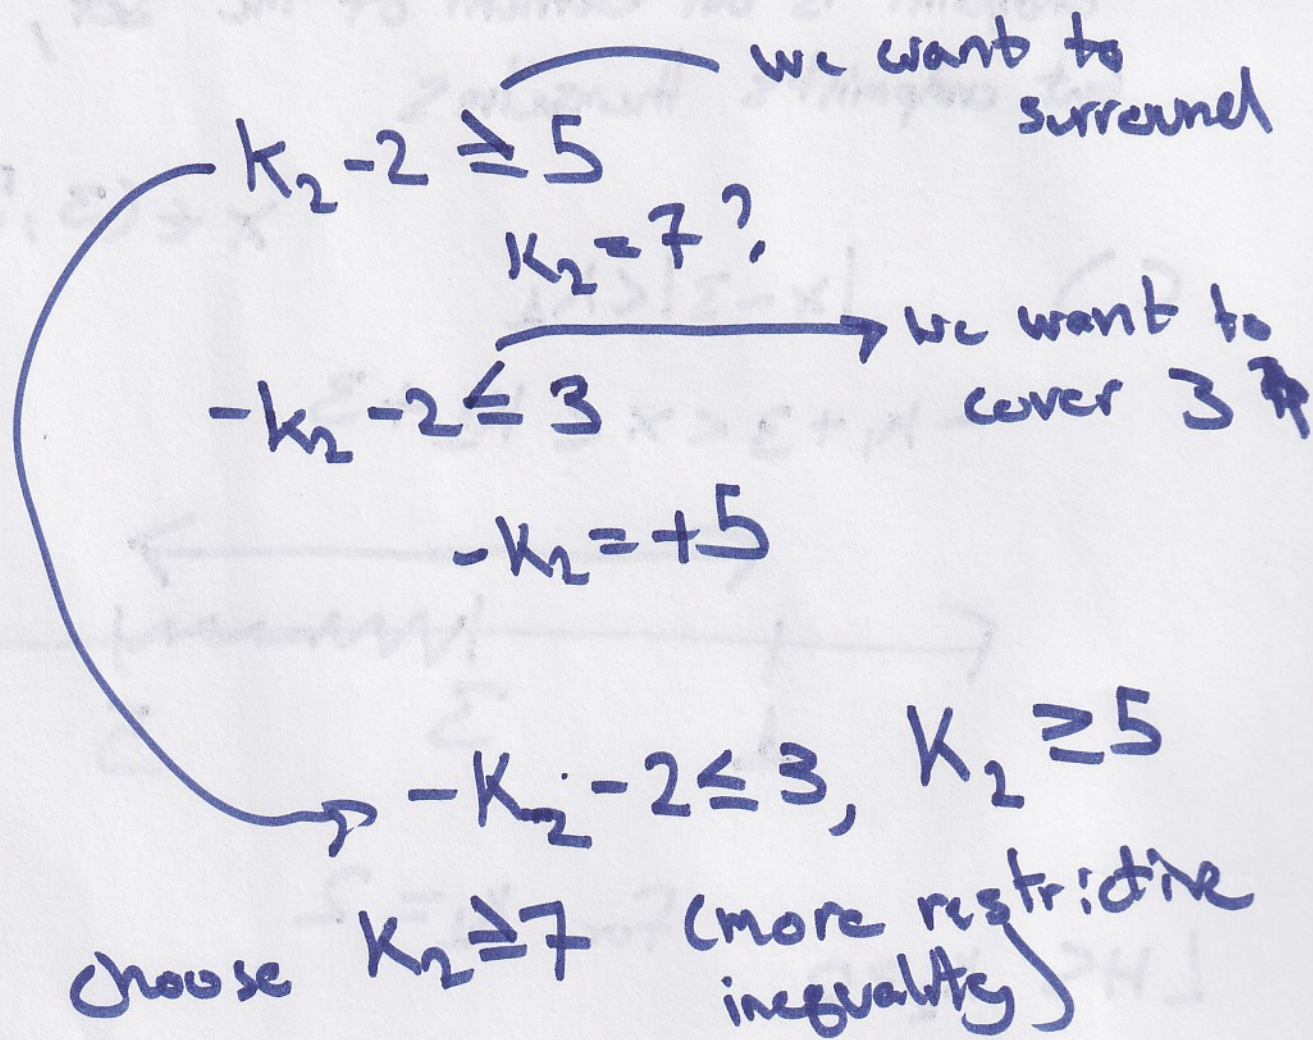 we want to
surround
k₂ - 2 ≥ 5
k₂ = 7?
we want to
cover 3
-k₂ - 2 ≤ 3
-k₂ = +5
-k₂ - 2 ≤ 3, k₂ ≥ 5
choose k₂ ≥ 7 (more restrictive
inequality)